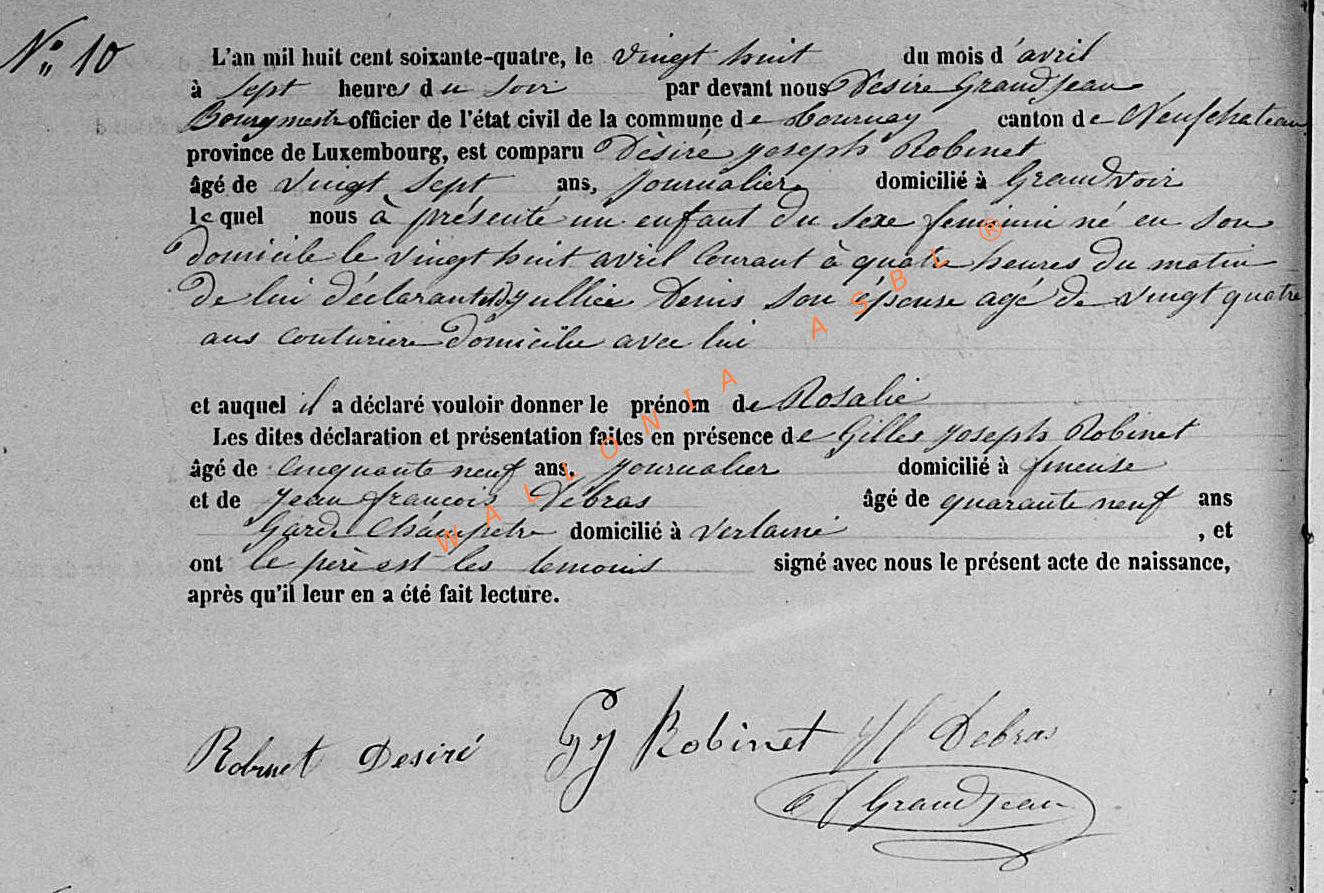 N° 10
L'an mil huit cent soixante-quatre, le vingt huit du mois d'avril
à sept heures du soir par devant nous Désiré Grandjean
Bourgmestre officier de l'état civil de la commune de Tournay canton de Neufchateau
province de Luxembourg, est comparu Désiré Joseph Robinet
âgé de vingt sept ans, journalier domicilié à Grandvoir
lequel nous à présenté un enfant du sexe feminin né en son
domicile le vingt huit avril courant à quatre heures du matin
de lui déclarant Denis son épouse agé de vingt quatre
ans couturiere domicilie avec lui
et auquel il a déclaré vouloir donner le prénom de Rosalie
Les dites déclaration et présentation faites en présence de Gilles Joseph Robinet
âgé de cinquante neuf ans, journalier domicilié à
et de Jean françois Debras âgé de quarante neuf ans
Garde Champetre domicilié à Verlaine , et
ont le père est les temoins signé avec nous le présent acte de naissance,
après qu'il leur en a été fait lecture.
Robinet Desiré
Gj Robinet
Jf Debras
Grandjean
WALLONIA ASBL ®